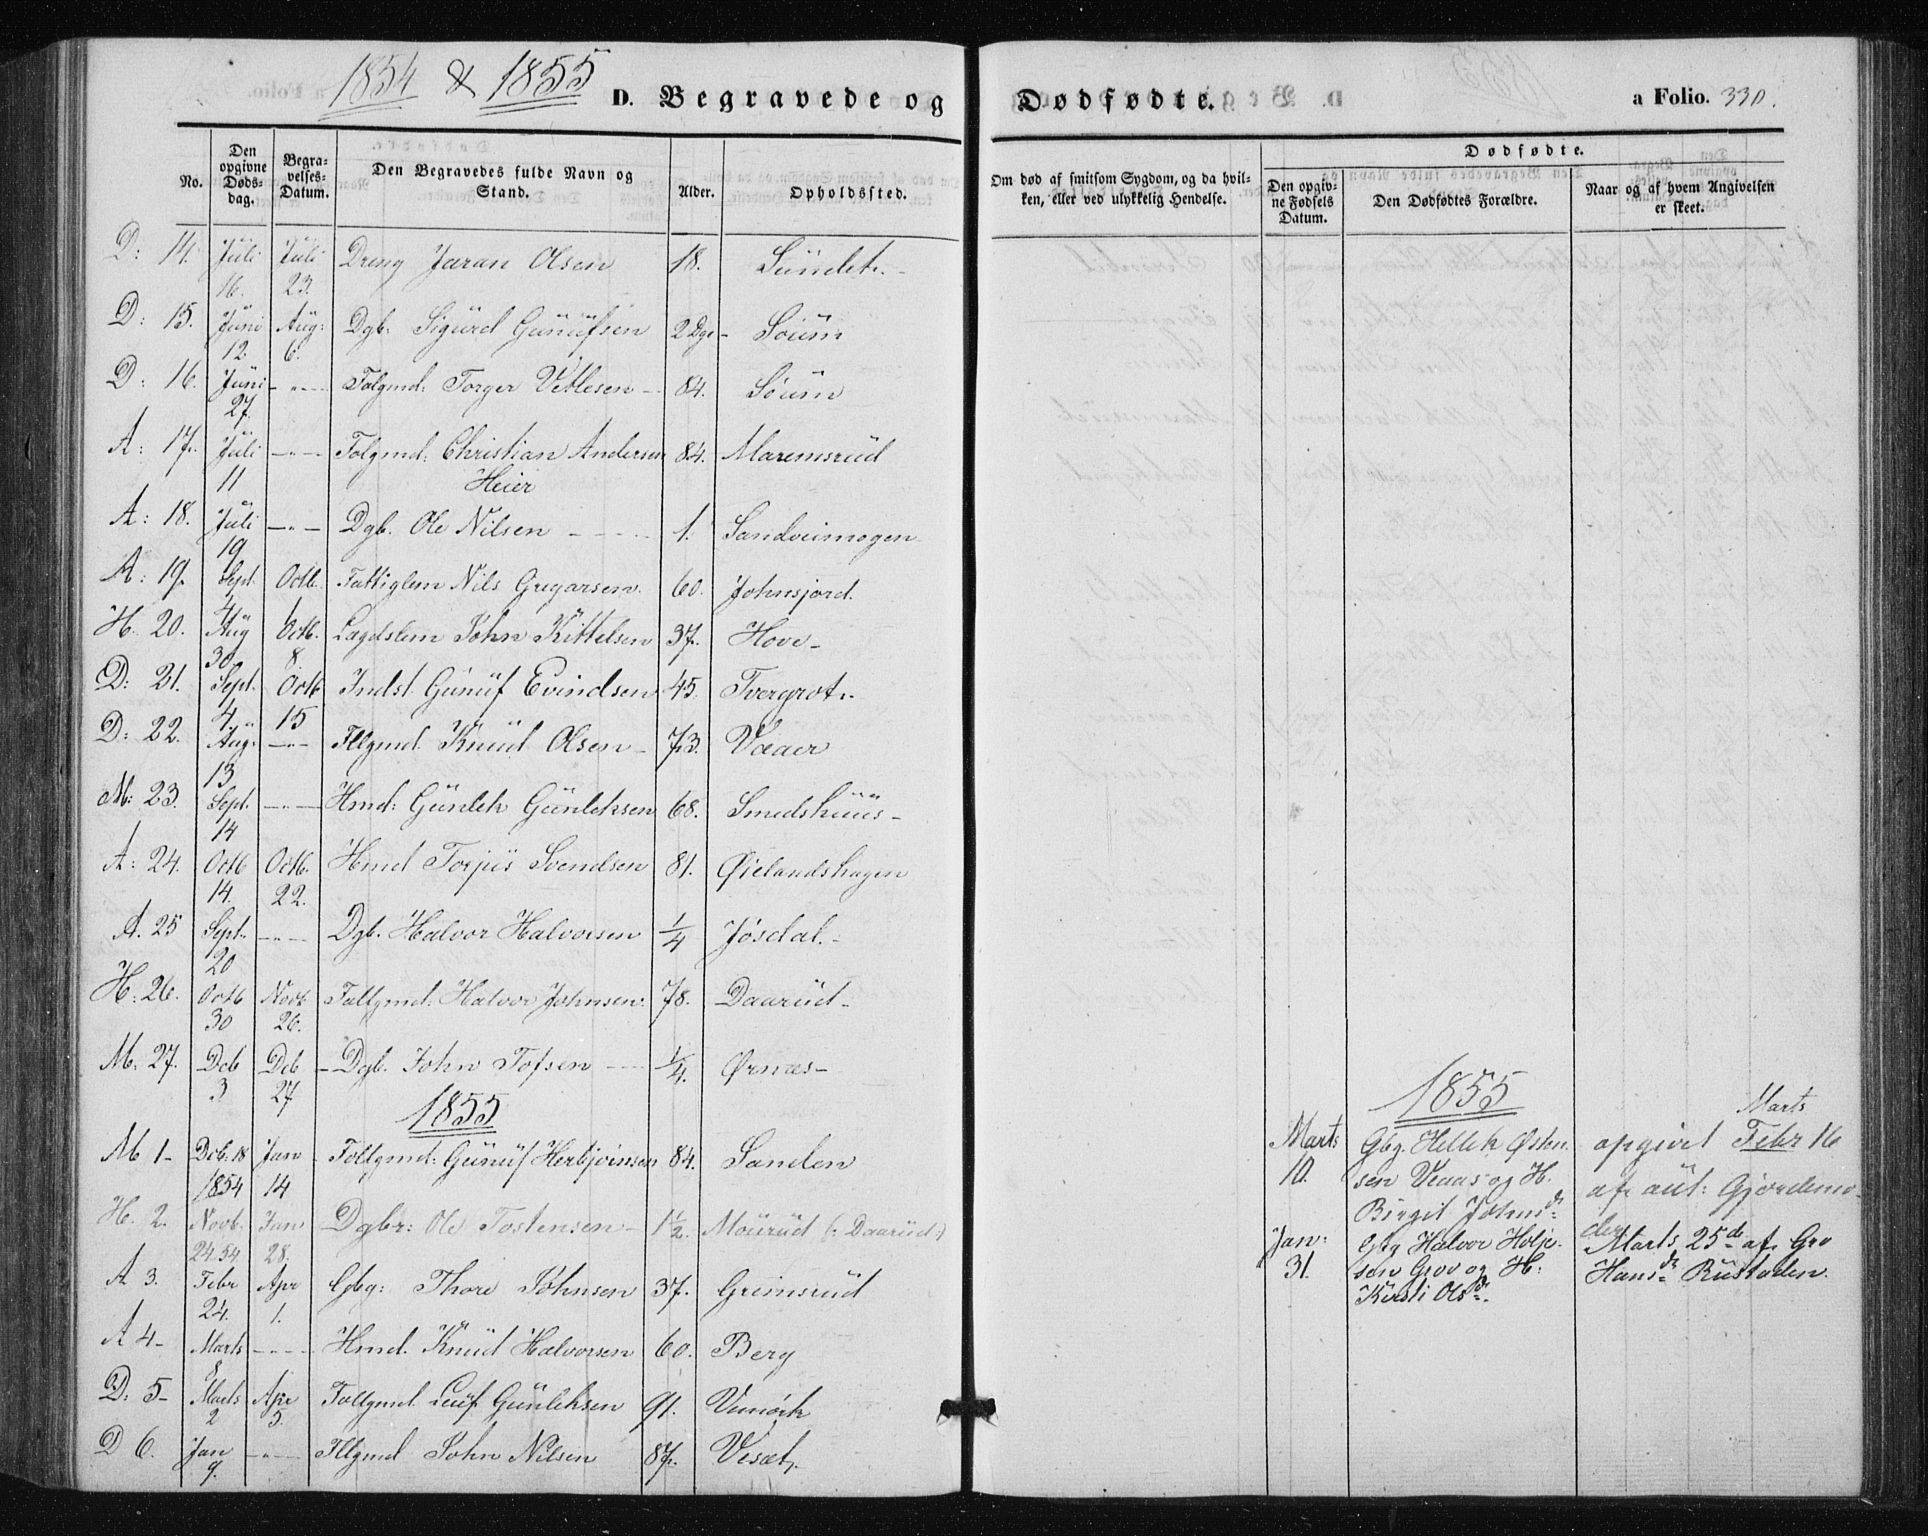 1854 & 1855
D. Begravede og Dødfødte.
a Folio. 330.
No.
Den opgivne Døds-dag.
Begra-velses-Datum.
Den Begravedes fulde Navn og Stand.
Alder.
Opholdsted.
Om død af smitsom Sygdom, og da hvil-ken, eller ved ulykkelig Hendelse.
Dødfødte.
Den opgiv-ne Fødsels Datum.
Den Dødfødtes Forældre.
Naar og af hvem Angivelsen er skeet.
D: 14. Juli 16. Juli 23. Dreng Jaran Olsen 18. Sundet.
D: 15. Juni 12. Aug: 6. Dgb. Sigurd Gunufsen 2 Dge Soum
D: 16. Juni 27. -"- Folgmd: Torger Vetlesen 84. Soum
A: 17. Juli 11 -"- Folgmd: Christian Andersen Heier 84. Maremsrud
A: 18. Juli 19 -"- Dgb. Ole Nilsen 1. Sandveimogen
A: 19. Sept. 4 Octb. 1 Fattiglem Nils Gregarsen. 60. Johnsjord.
H. 20. Aug 30 Octb. 8. Lægdslem John Kittelsen 37. Hove
D: 21. Sept. 4 Octb 15 Indst. Gunuf Evindsen 45. Tvergrot.
D: 22. Aug: 13 -"- Fllgmd. Knud Olsen 73. Vaaer
M: 23. Sept. 14 -"- Hmd: Gunlek Gunleksen 68. Smedshuus
A: 24. Octb 14. Octb. 22. Hmd Torjus Svendsen 81. Øielandshagen
A. 25 Sept. 20 -"- Dgb. Halvor Halvorsen 1/4 Jøsdal.
H: 26. Octb 30 Novb 26. Follgmd: Halvor Johnsen 78. Daarud
M: 27. Dcb 3 Dcb 27 Dgb. John Tofsen 1/4. Ørnæs
1855
M 1 Dcb. 18 1854 Jan 14 Follgmd: Gunuf Herbjørnsen 84. Sanden
H. 2. Novb. 24. 54 Jan 28. Dgbr: Ole Tostensen 1 1/2. Mourud (: Daarud :)
A 3. Febr 24. Apr 1. Gbg: Thore Johnsen 37. Grimsrud
A 4 Marts 8 -"- Hmd. Knud Halvorsen 60. Berg
D: 5 Marts 2 Apr 5. Follgmd. Leuf Gunleksen 91. Vemork
D 6. Jan 9. -"- Fllgmd John Nilsen 87. Vesæt.
1855
Marts
Marts 10. Gbg. Hellek Østen- opgivet Febr 16
sen Vaas og H. af aut: Gjordemo-
Birgit Johns dr der
Jan: 31. Gbg Halvor Holje- Marts 25de af Gro
sen Grov og H: Hans dr Rustaden.
Kirsti Ols dr.